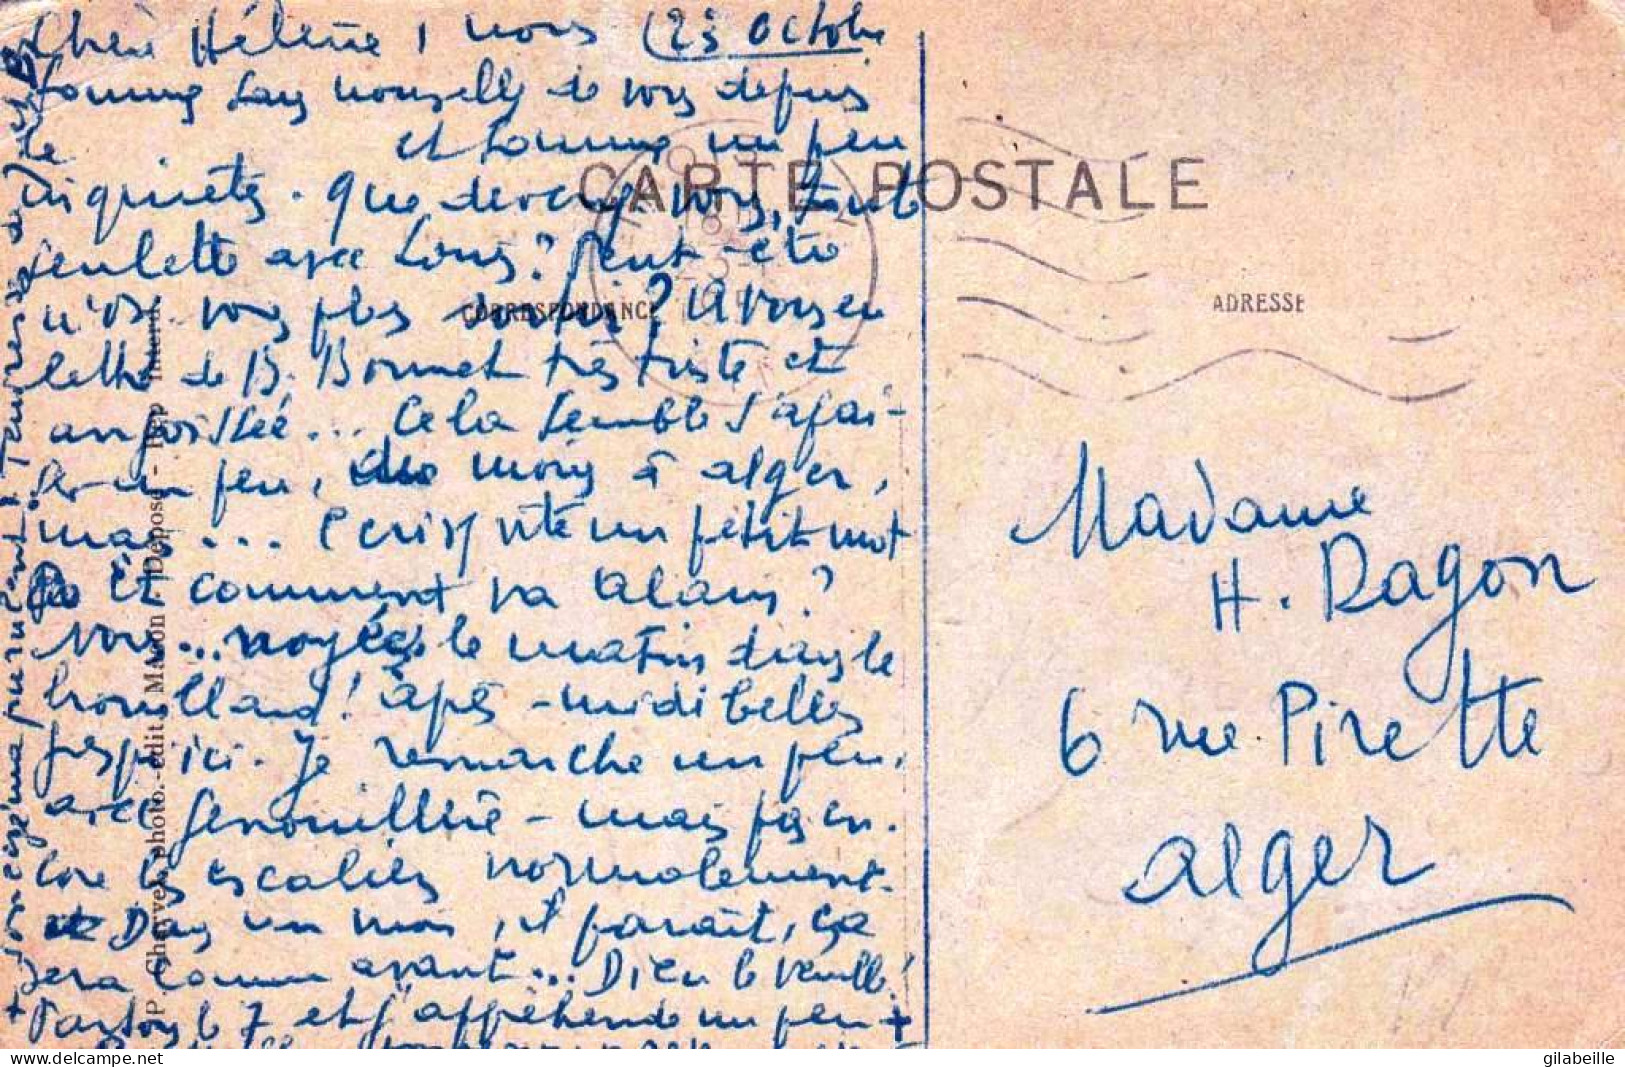 Chère Hélène, nous (23 octobre
sommes sans nouvelles de vous depuis
le et sommes un peu
inquiètes. Que devenez-vous, toute
seulette avec Louis? Peut-être
n'est vous plus ? Avons eu
lettre de B. Bonnet très triste et
angoissée... Cela semble s'apai-
ser un peu, du moins à alger,
mais... Ecrivez vite un petit mot
Et comment va Alain?
Nous... noyées le matin dans le
brouillard! après-midi belles
jusqu'ici. Je remarche un peu,
avec genouillère - mais pas en-
core les escaliers normalement.
Dans un mois, il paraît, ça
sera comme avant... Dieu le veuille!
Partons le 7 et j'appréhende un peu +
CARTE POSTALE
CORRESPONDANCE
ADRESSE
Madame
H. Ragon
6 rue Pirette
alger
photo.-édit. Mâcon - Déposé - Rep. Interd.
gilabeille